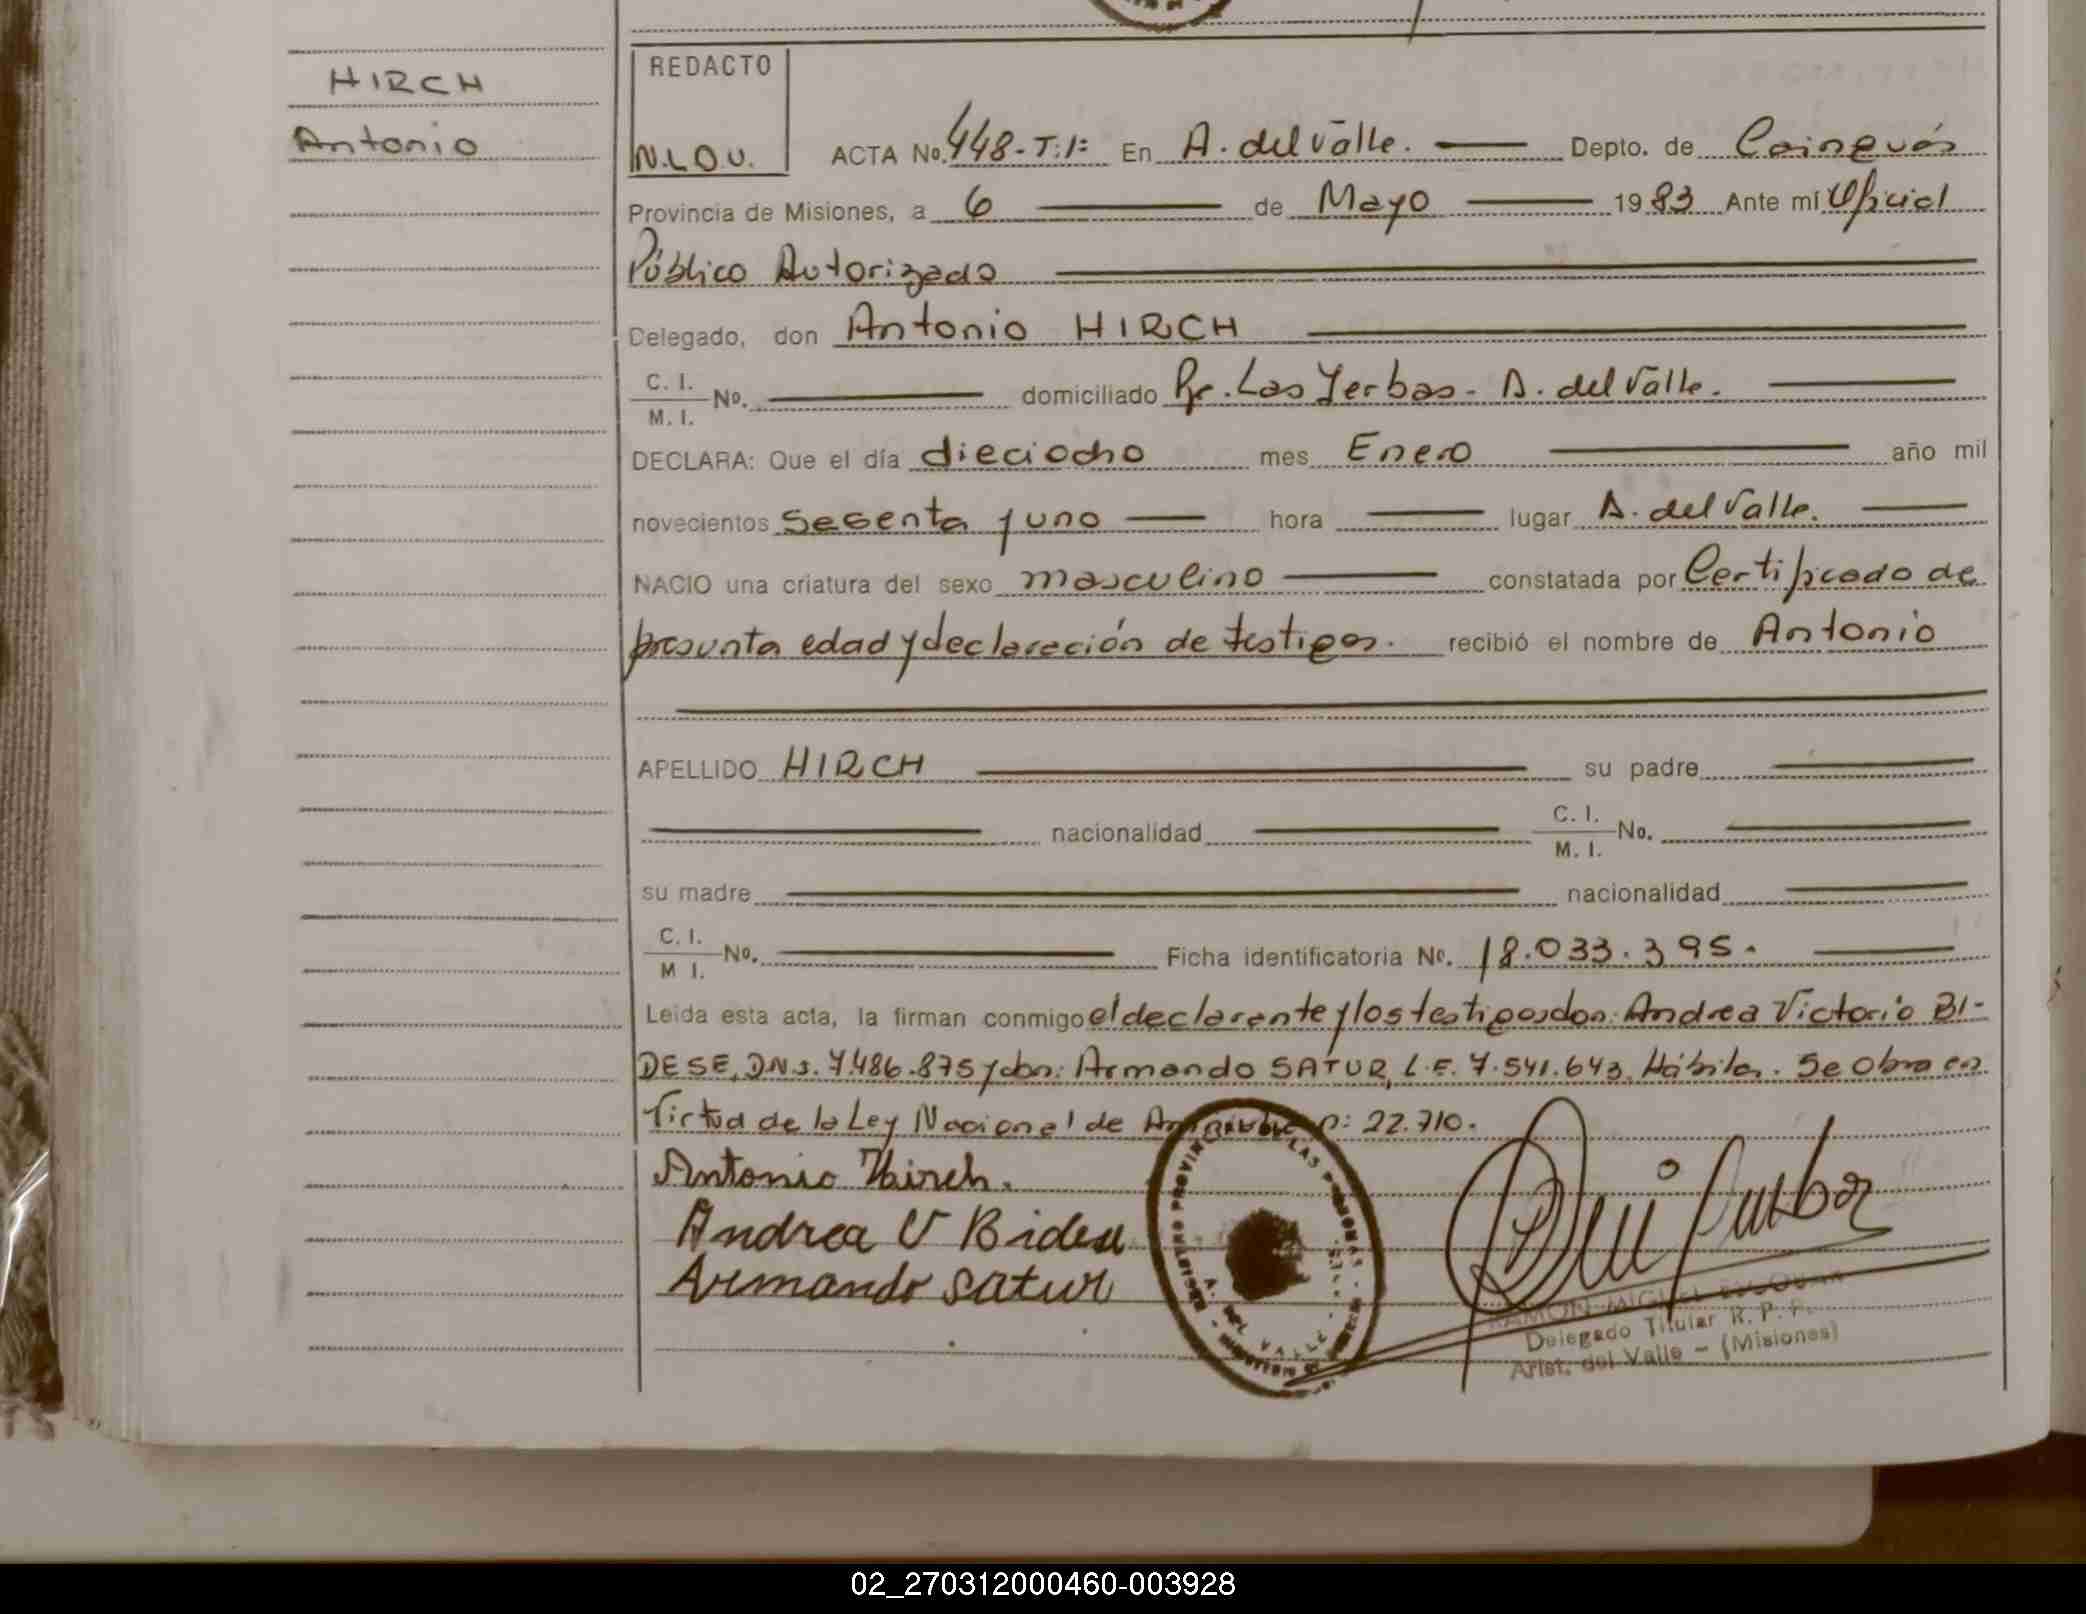 HIRCH
Antonio
REDACTO
N.L.O.V.
ACTA No. 448-T:1: En A. del Valle. Depto. de Cainguás
Provincia de Misiones, a 6 de Mayo 1983 Ante mí Oficial
Público Autorizado
Delegado, don Antonio HIRCH
C. I.
M. I. No. domiciliado Pje. Las Yerbas - A. del Valle.
DECLARA: Que el día dieciocho mes Enero año mil
novecientos sesenta y uno hora lugar A. del Valle.
NACIO una criatura del sexo masculino constatada por Certificado de
presunta edad y declaración de testigos. recibió el nombre de Antonio
APELLIDO HIRCH su padre
nacionalidad C. I.
M. I. No.
su madre nacionalidad
C. I.
M I. No. Ficha identificatoria No. 18.033.395.
Leída esta acta, la firman conmigo el declarante y los testigos don: Andrea Victorio BI-
DESE, DNI. 7.486.875 y don: Armando SATUR, L.E. 7.541.643, Hábiles. Se Obra en
Virtud de la Ley Nacional de n: 22.710.
Antonio Hirch.
Andrea V Bidese
Armando Satur
REGISTRO PROVINCIAL DE LAS PERSONAS
A. DEL VALLE
RAMON MIGUEL ESCOBAR
Delegado Titular R. P. P.
Arist. del Valle - (Misiones)
02_270312000460-003928